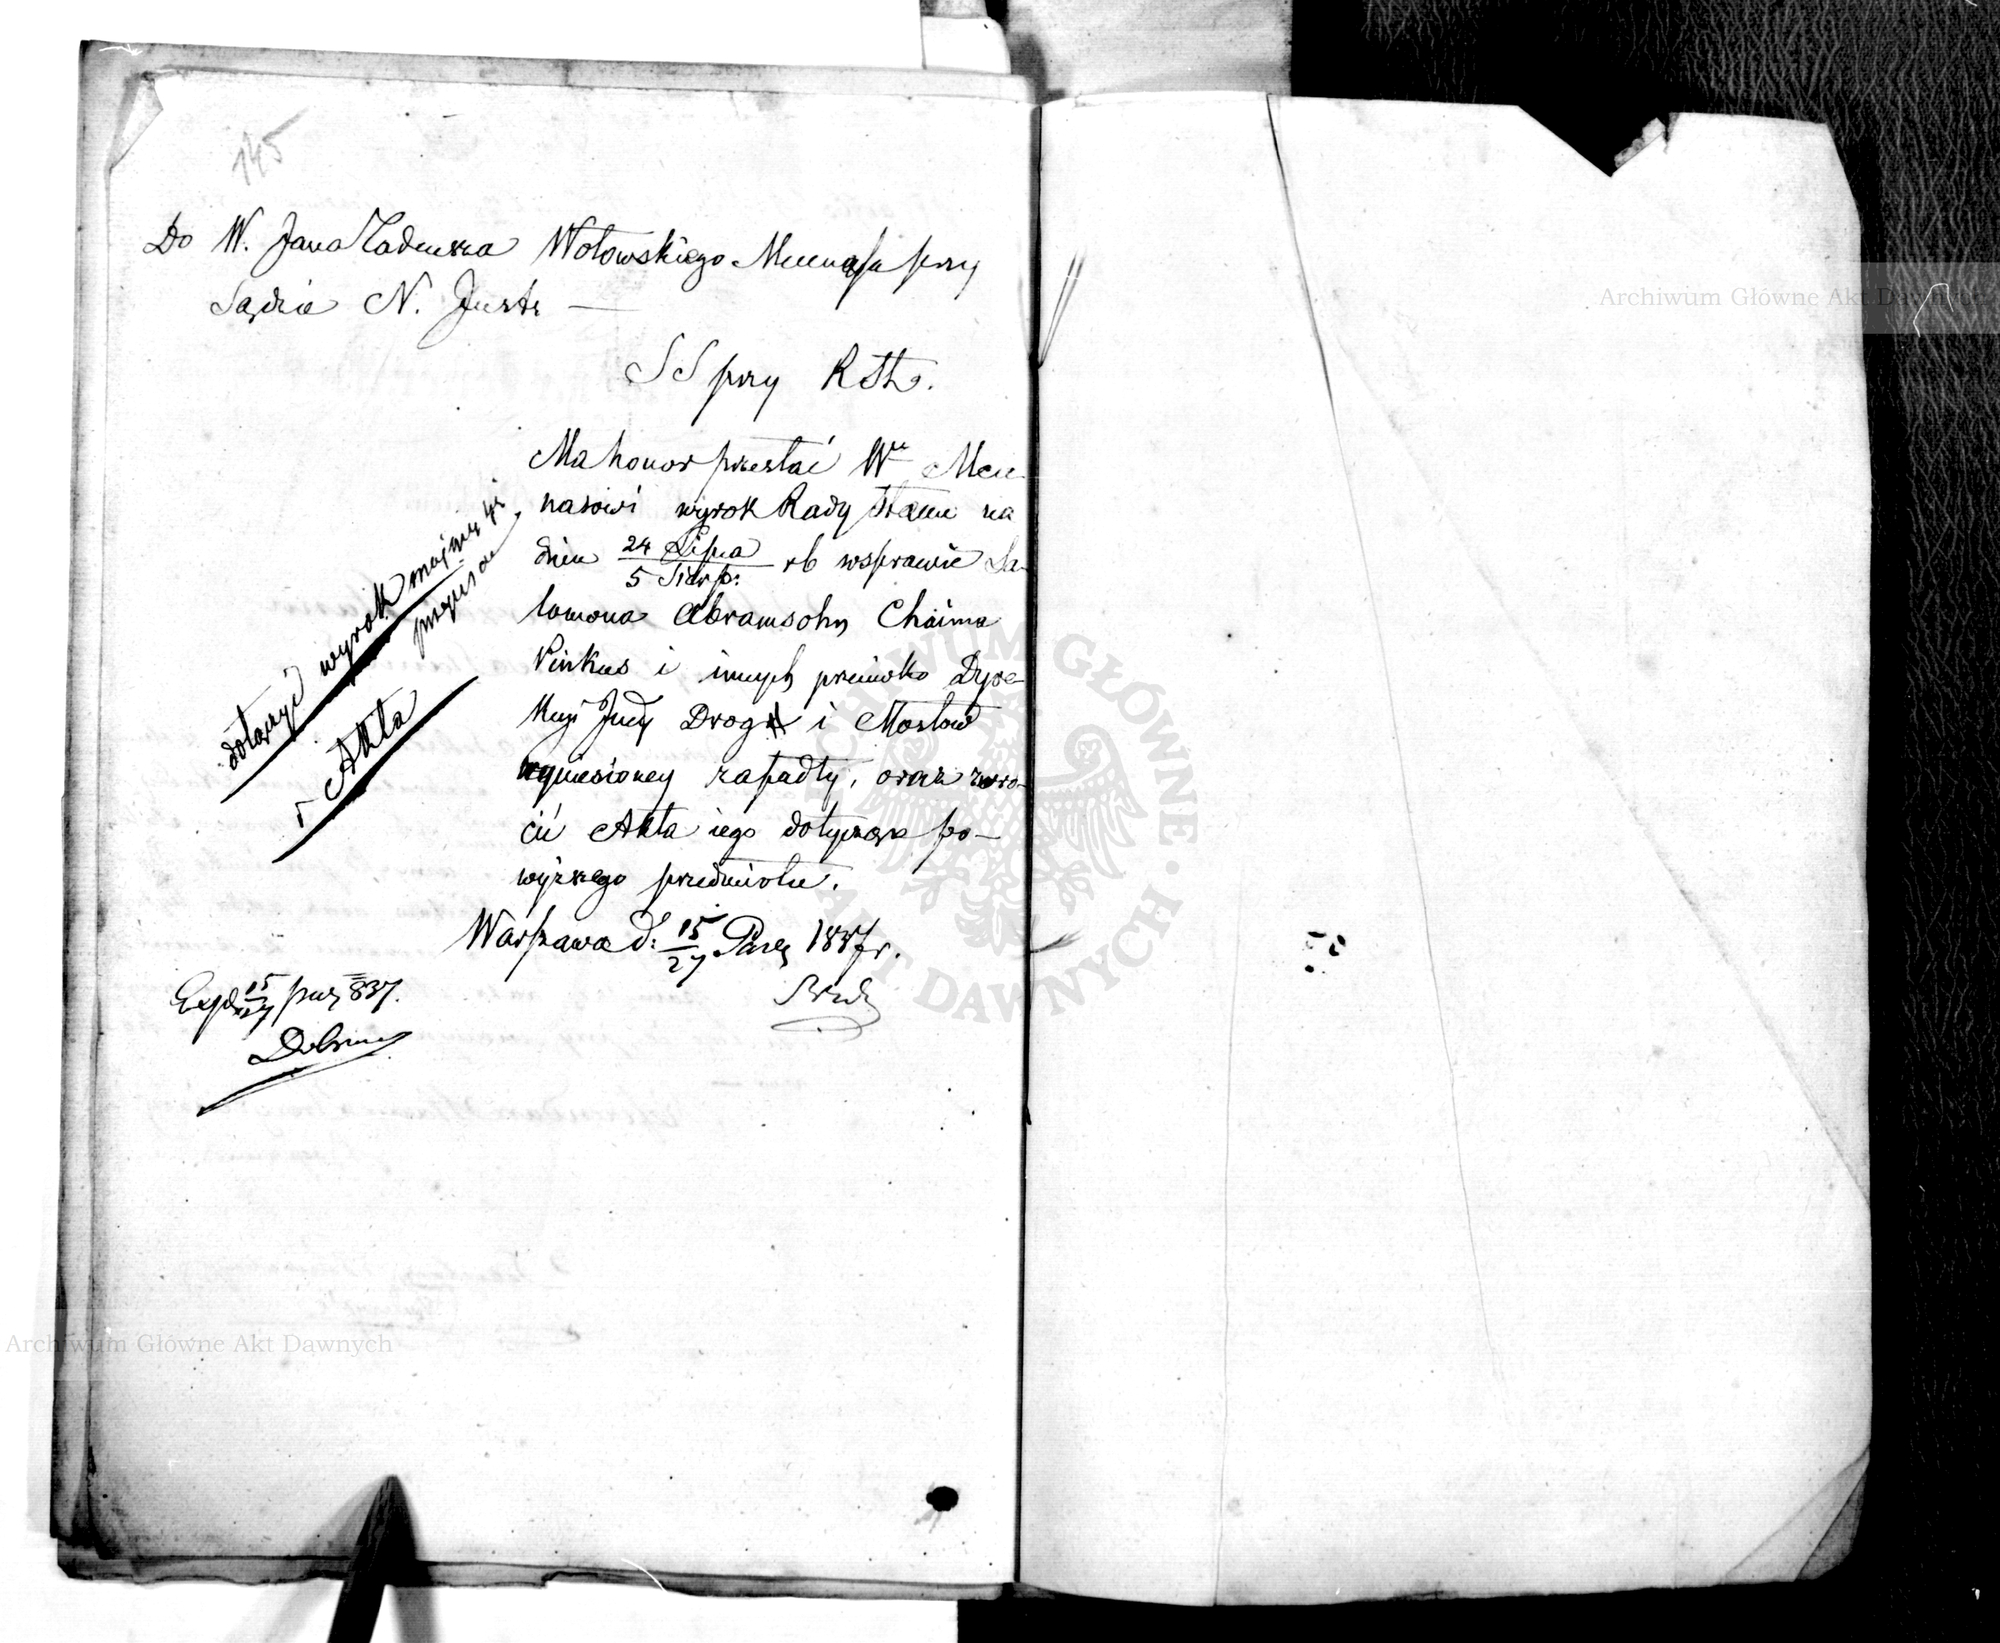 145
Do W. Jana Tadeusza Wołowskiego Mecenasa przy
Sądzie N. Insta —
SS przy RSta.
Ma honor przesłać Wu Mece-
nasowi wyrok Rady Stanu na
dniu 24 Lipca / 5 Sierp: rb w sprawie Sa-
lomona Abramsohn Chaima
Pinkus i innych przeciwko Dyre-
kcyi Dróg i Mostów
wyniesioney zapadły, oraz zwró-
cić Akta iego dotyczące po-
wyższego przedmiotu.
Warszawa d: 15/27 Paźr 1837 r.
Expd 15/27 paźr 837.
dołączyć wyrok
i Akta
Archiwum Główne Akt Dawnych
Archiwum Główne Akt Dawnych
ARCHIWUM GŁÓWNE AKT DAWNYCH